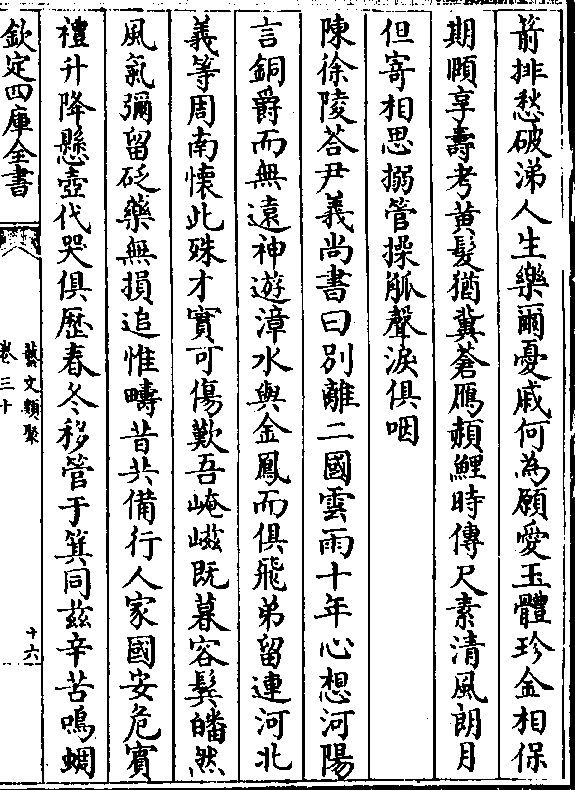 箭排愁破涕人生樂爾憂戚何為願愛玉體珍金相保
期頤享壽考黃髮猶冀蒼鴈頳鯉時傳尺素清風朗月
但寄相思搦管操觚聲淚俱咽
陳徐陵荅尹義尚書曰別離二國雲雨十年心想河陽
言銅爵而無遠神遊漳水與金鳳而俱飛弟留連河北
義等周南懐此殊才實可傷歎吾崦嵫既暮容鬢皤然
風氣彌留砭藥無損追惟疇昔共備行人家國安危賓
禮升降懸壺代哭俱歴春冬移管于箕同兹辛苦鳴蜩
欽定四庫全書
藝文類聚
卷三十
十六